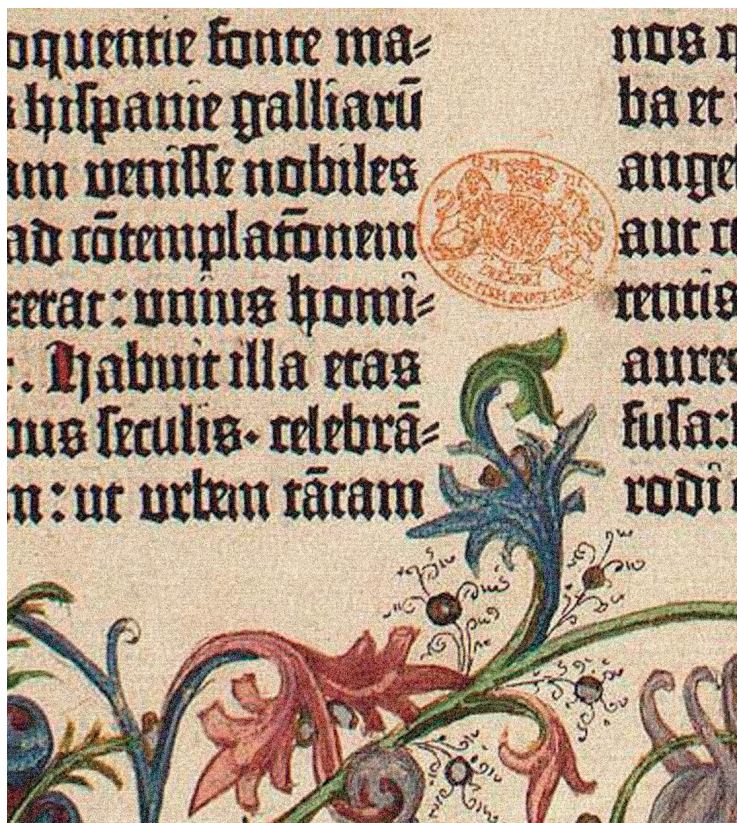 oquentie fonte ma⸗
hiſpanie galliarū
am veniſſe nobiles
ad cōtemplatōnem
xerat: unius homi⸗
. Habuit illa etas
nus ſeculis· celebrā⸗
m: ut urbem tātam
nos
ba et
angel
aut
tentis
aures
fuſa:
rodi